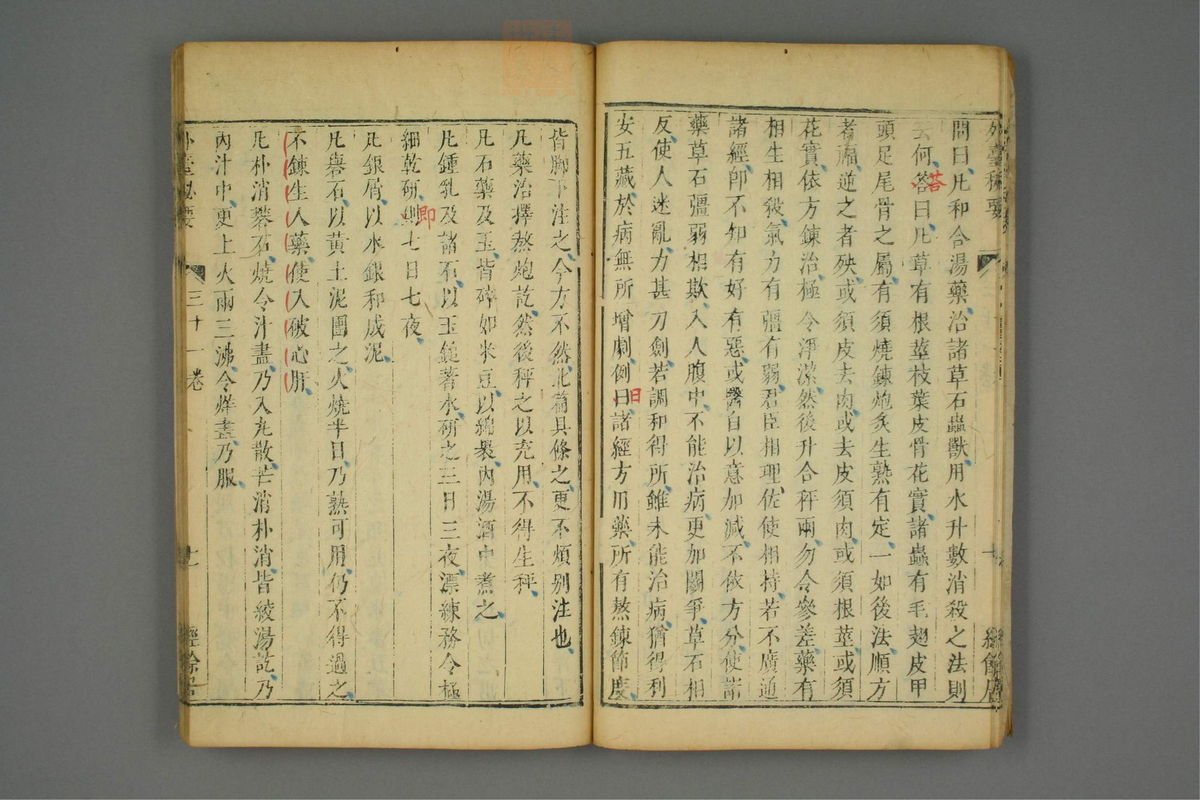 外臺秘要
問曰凡和合湯藥治諸草石蟲獸用水升數消殺之法則
云何答曰凡草有根莖枝葉皮骨花實諸蟲有毛翅皮甲
答
頭足尾骨之屬有須燒鍊炮炙生熟有定一如後法順方
者福逆之者殃或須皮去肉或去皮須肉或須根莖或須
花實依方鍊治極令淨潔然後升合秤兩勿令參差藥有
相生相殺氣力有彊有弱君臣相理佐使相持若不廣通
諸經即不知有好有惡或醫自以意加減不依方分使諸
藥草石彊弱相欺入人腹中不能治病更加鬬爭草石相
反使人迷亂力甚刀劍若調和得所雖未能治病猶得利
安五藏於病無所增劇例曰諸經方用藥所有熬鍊節度
日
經餘居
皆脚下注之今方不然北篇具條之更不煩別注也
凡藥治擇熬炮訖然後秤之以充用不得生秤
凡石藥及玉皆碎如米豆以綿裹內湯酒中煮之
凡鍾乳及諸石以玉鎚著水研之三日三夜漂練務令極
細乾研 七日七夜
即
凡銀屑以水銀和成泥
凡礜石以黃土泥團之火燒半日乃熟可用仍不得過之
不鍊生入藥使入破心肝
凡朴消礬石燒令汁盡乃入丸散芒消朴消皆綾湯訖乃
內汁中更上火兩三沸令烊盡乃服
外臺秘要 三十一卷 七 經餘居